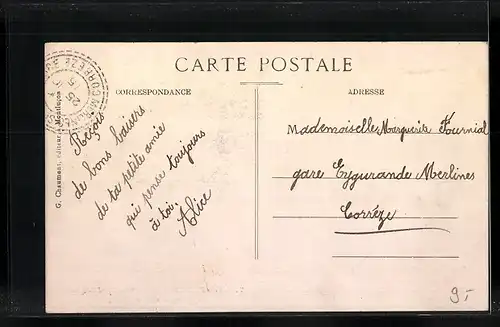 CARTE POSTALE
CORRESPONDANCE
ADRESSE
Reçois
de bons baisers
de ta petite amie
qui pense toujours
à toi.
Alice
Mademoiselle Marguerite Fournial
gare Eygurande Merlines
Corrèze
G. Chaumont, éditeur
25
9.-